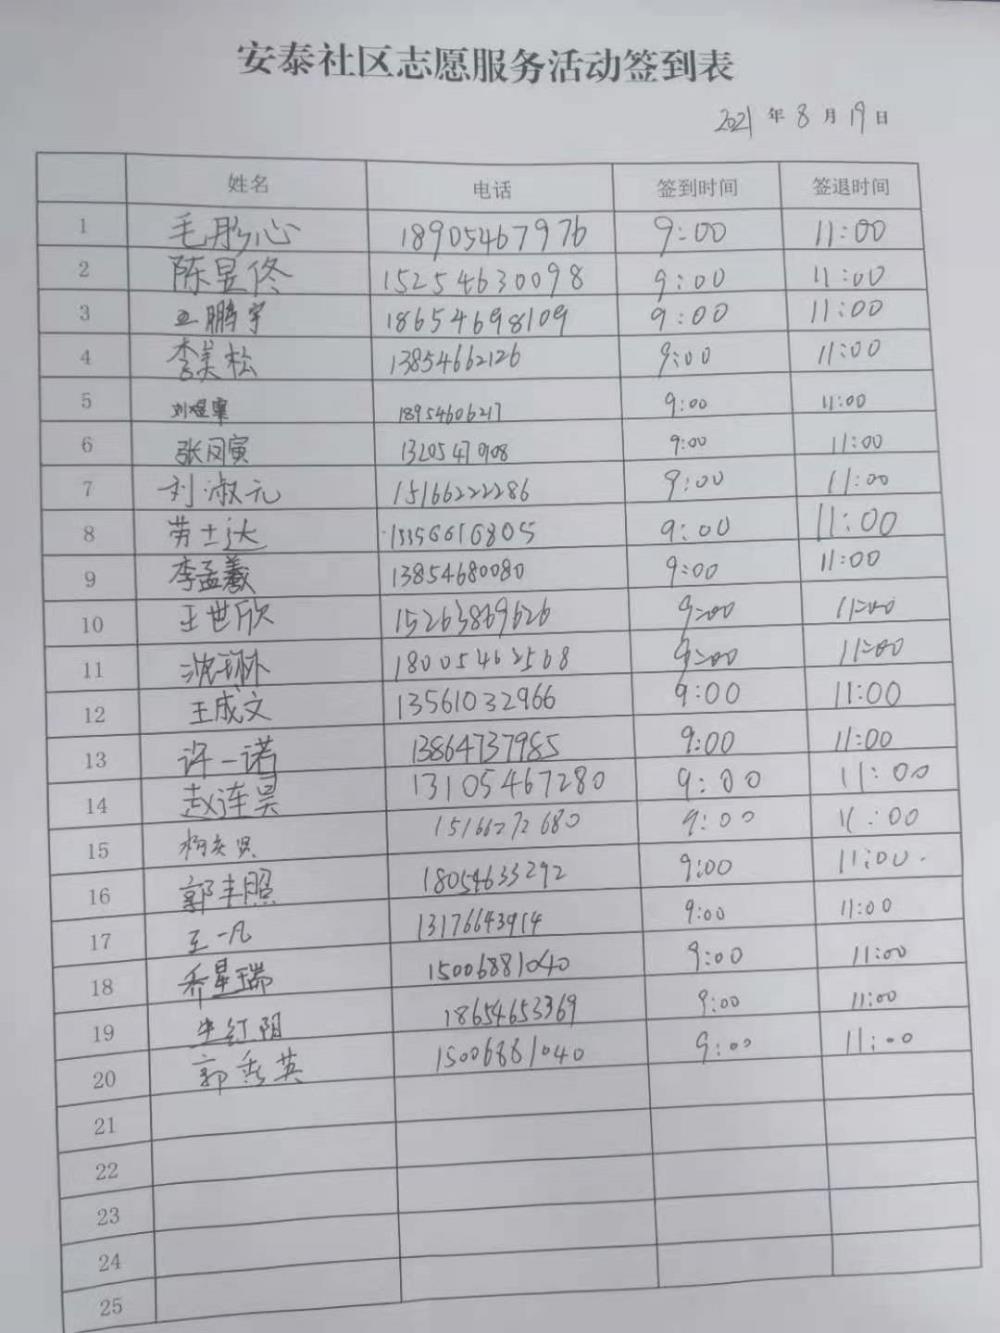 安泰社区志愿服务活动签到表
2021年8月19日
姓名 电话 签到时间 签退时间
1 毛彤心 18905467976 9:00 11:00
2 陈昱佟 15254630098 9:00 11:00
3 王鹏宇 18654698109 9:00 11:00
4 李美松 13854662126 9:00 11:00
5 刘煜 18954606217 9:00 11:00
6 张凤寅 13205471908 9:00 11:00
7 刘淑元 15166222286 9:00 11:00
8 劳士达 13356616805 9:00 11:00
9 李孟羲 13854680080 9:00 11:00
10 王世欣 15263869626 9:00 11:00
11 沈琳 18005462568 9:00 11:00
12 王成文 13561032966 9:00 11:00
13 许一诺 13864737985 9:00 11:00
14 赵连昊 13105467280 9:00 11:00
15 15166272680 9:00 11:00
16 郭丰照 18054633292 9:00 11:00
17 王一凡 13176643914 9:00 11:00
18 乔星瑞 15006881040 9:00 11:00
19 牛红阳 18654653369 9:00 11:00
20 郭秀英 15006881040 9:00 11:00
21
22
23
24
25